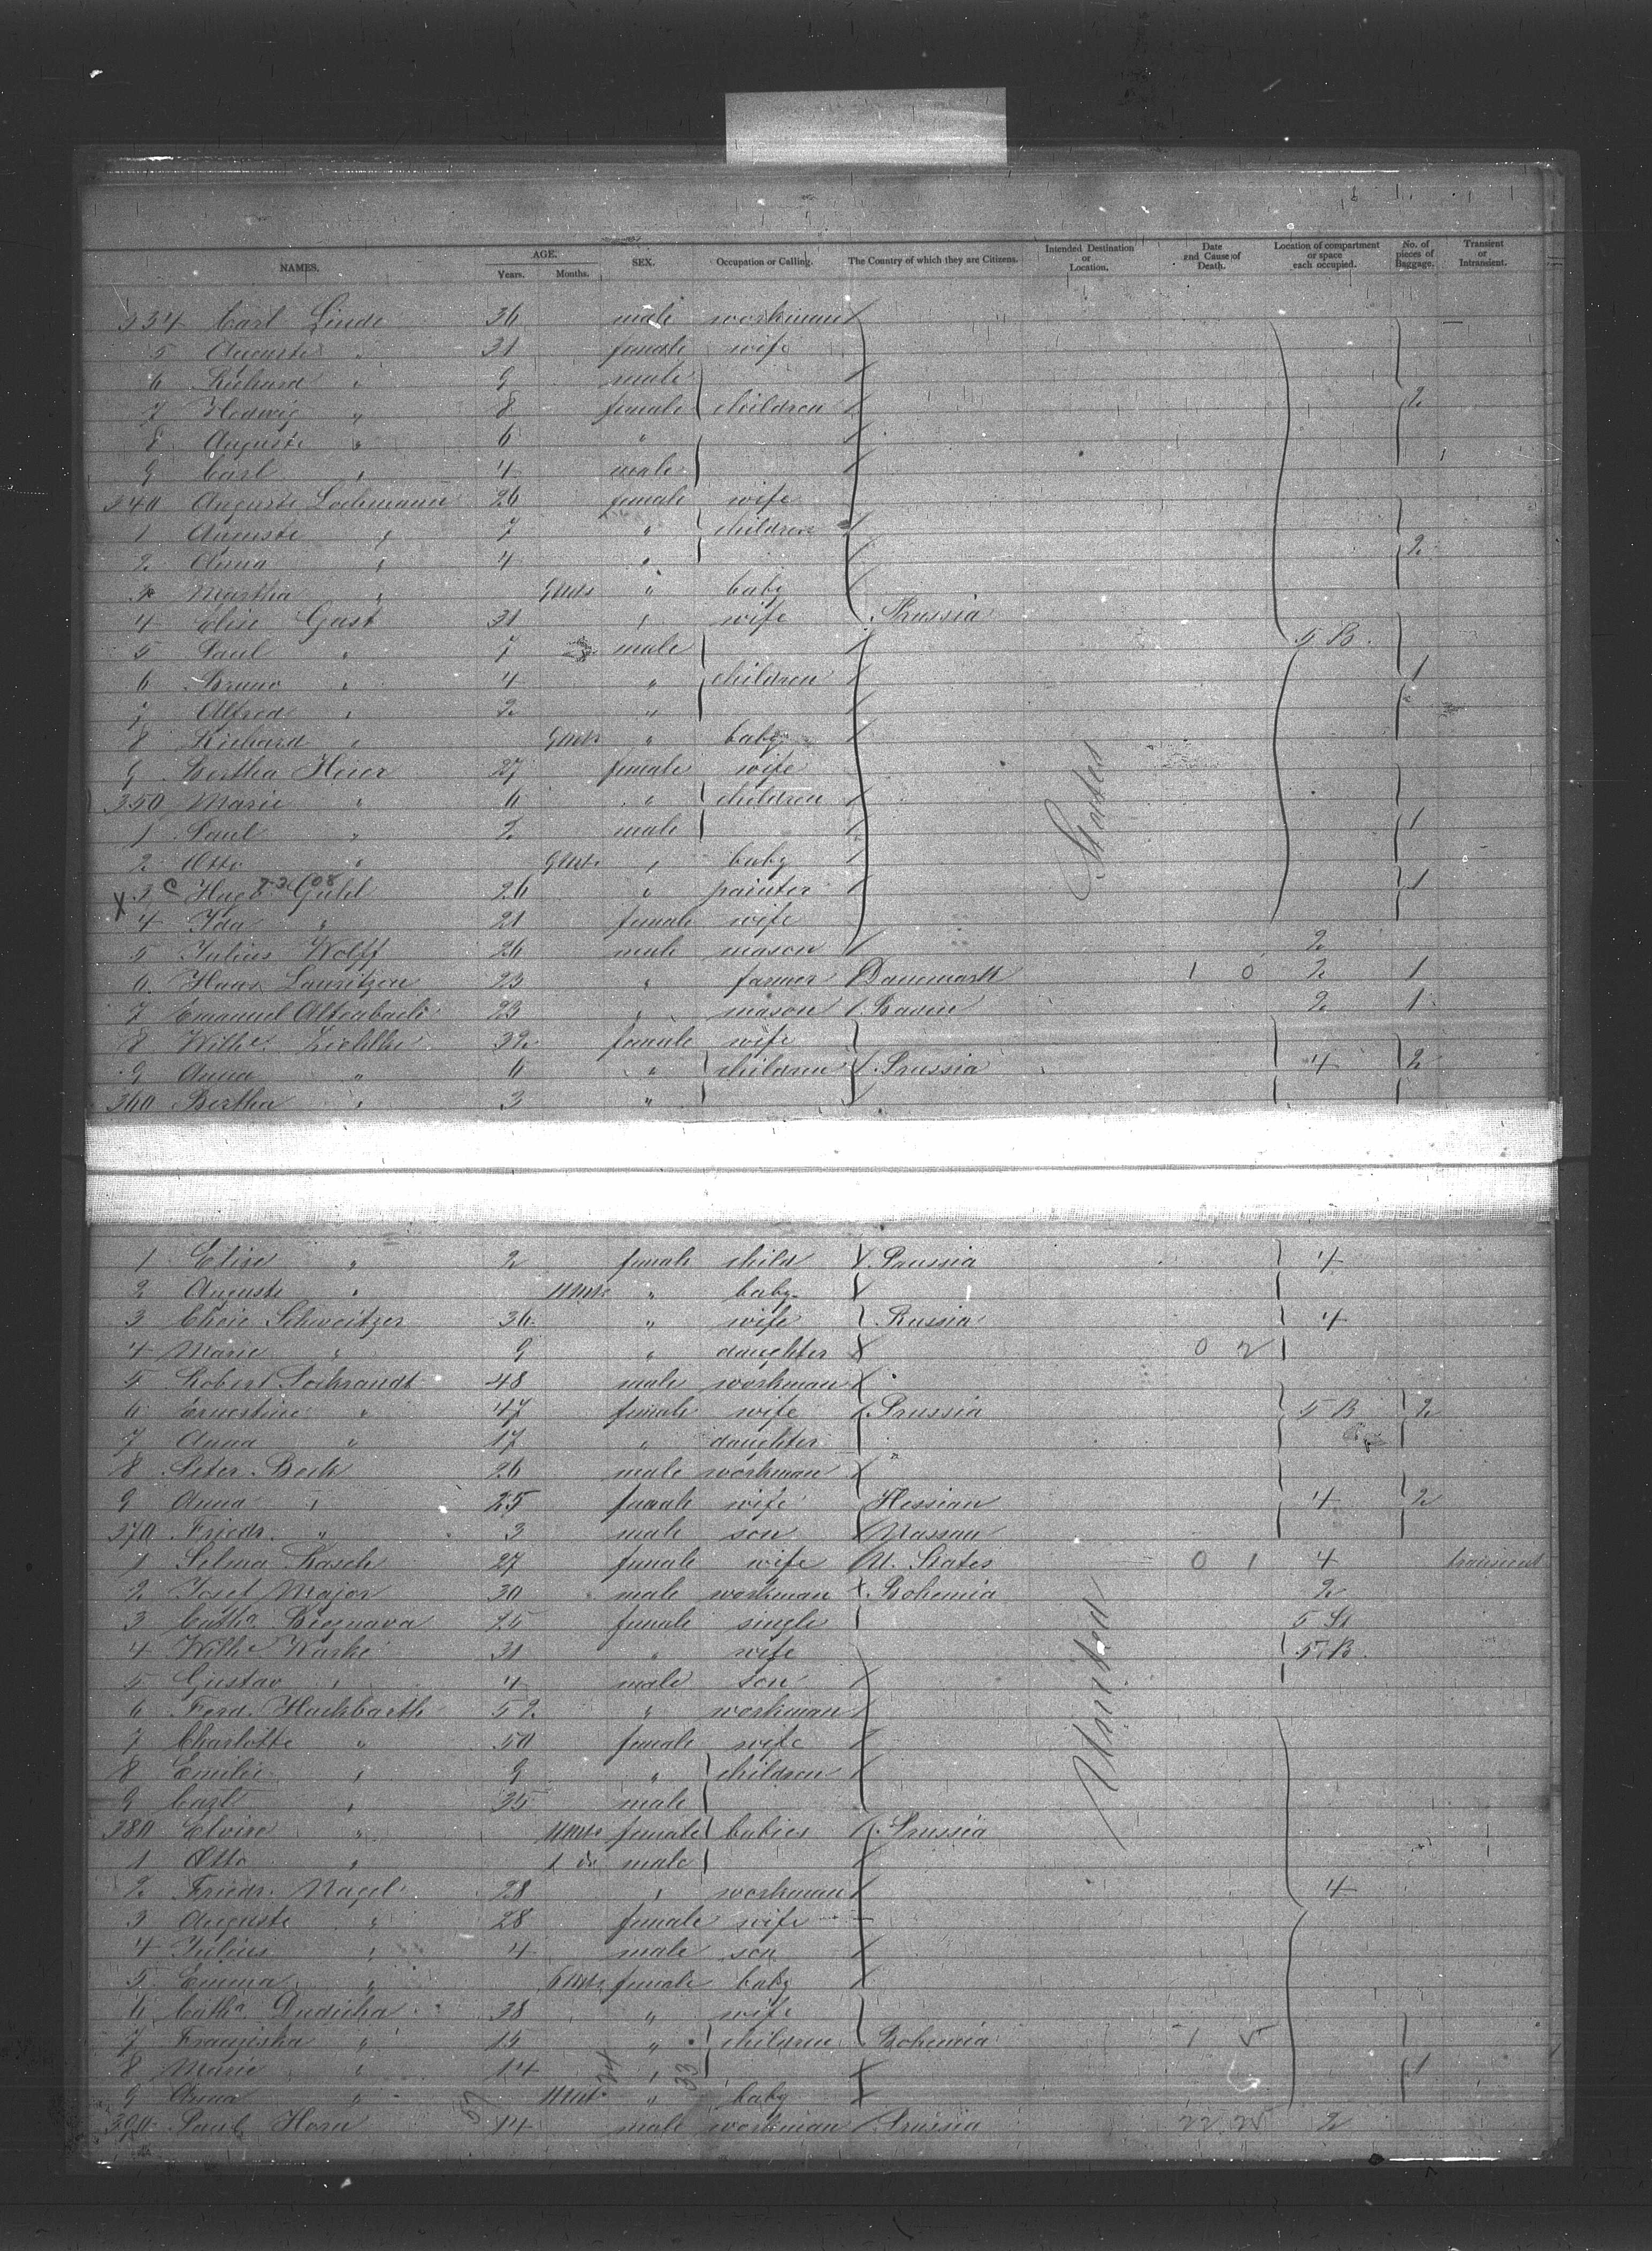 NAMES. AGE. Years. Months. SEX. Occupation or Calling. The Country of which they are Citizens. Intended Destination or Location. Date and Cause of Death. Location of compartment or space each occupied. No. of pieces of Baggage. Transient or Intransient.
334 Carl Linde 36 male workman
5 Auguste " 31 female wife
6 Richard " 9 male
7 Hedwig " 8 female children 2
8 Auguste " 6 "
9 Carl " 4 male
340 Auguste Lochmann 26 female wife
1 Auguste " 7 " children
2 Anna " 4 " 2
3 Martha " 9 Mts " baby
4 Elise Gust 31 " wife Prussia
5 Paul " 7 male 5 B.
6 Bruno " 4 " children 1
7 Alfred " 2 "
8 Richard " 9 Mts " baby
9 Bertha Heier 27 female wife
350 Marie " 6 " children
1 Paul " 2 male 1
2 Otto " 9 Mts " baby
X 3 c Hugo Guhl 26 " painter 1
4 Ida " 21 female wife
5 Julius Wolff 26 male mason 2
6 Hans Lauritzen 23 " farmer Danemark 1 0 2 1
7 Emanuel 23 " mason Baden 2 1
8 Wilhe. 32 female wife
9 Anna " 6 " children Prussia 4 2
360 Bertha " 3 "
States
1 Elise " 2 female child Prussia 4
2 Auguste " 11 Mts " baby
3 Schweitzer 36 " wife Russia 4
4 Marie " 9 " daughter 0 2
5 Robert 48 male workman
6 Ernestine " 47 female wife Prussia 5 B 2
7 Anna " 17 " daughter
8 Peter Bech 26 male workman "
9 Anna " 25 female wife Hessian 4 2
370 Friedr. " 3 male son Nassau
1 Selma Rasch 27 female wife U. States 0 1 4 transient
2 Josef Major 30 male workman Bohemia 2
3 Catha. 25 female single 5 St
4 Wilhe Warke 31 " wife 5 B.
5 Gustav " 4 male son
6 Ferd. Hackbarth 52 " workman
7 Charlotte " 50 female wife
8 Emilie " 9 " children
9 Carl " 35 male
380 Elvire " 11 Mts female babies Prussia
1 Otto " 1 do male
2 Friedr. Nagel 28 " workman 4
3 Auguste " 28 female wife
4 Julius " 4 male son
5 Emma " 6 Mts female baby
6 Catha. Dudicha 38 " wife
7 Franziska " 15 " children Bohemia 1 5
8 Marie " 14 " 1
9 Anna " 11 Mts " baby
390 Paul Horn 14 male workman Prussia 22 25 2
United